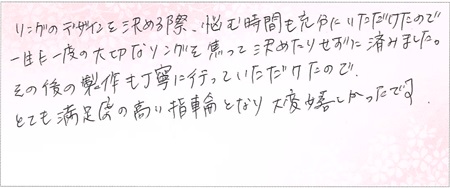 リングのデザインを決める際、悩む時間も充分にいただけたので
一生に一度の大切なリングを焦って決めたりせずに済みました。
その後の製作も丁寧に行っていただけたので、
とても満足度の高い指輪となり大変嬉しかったです。